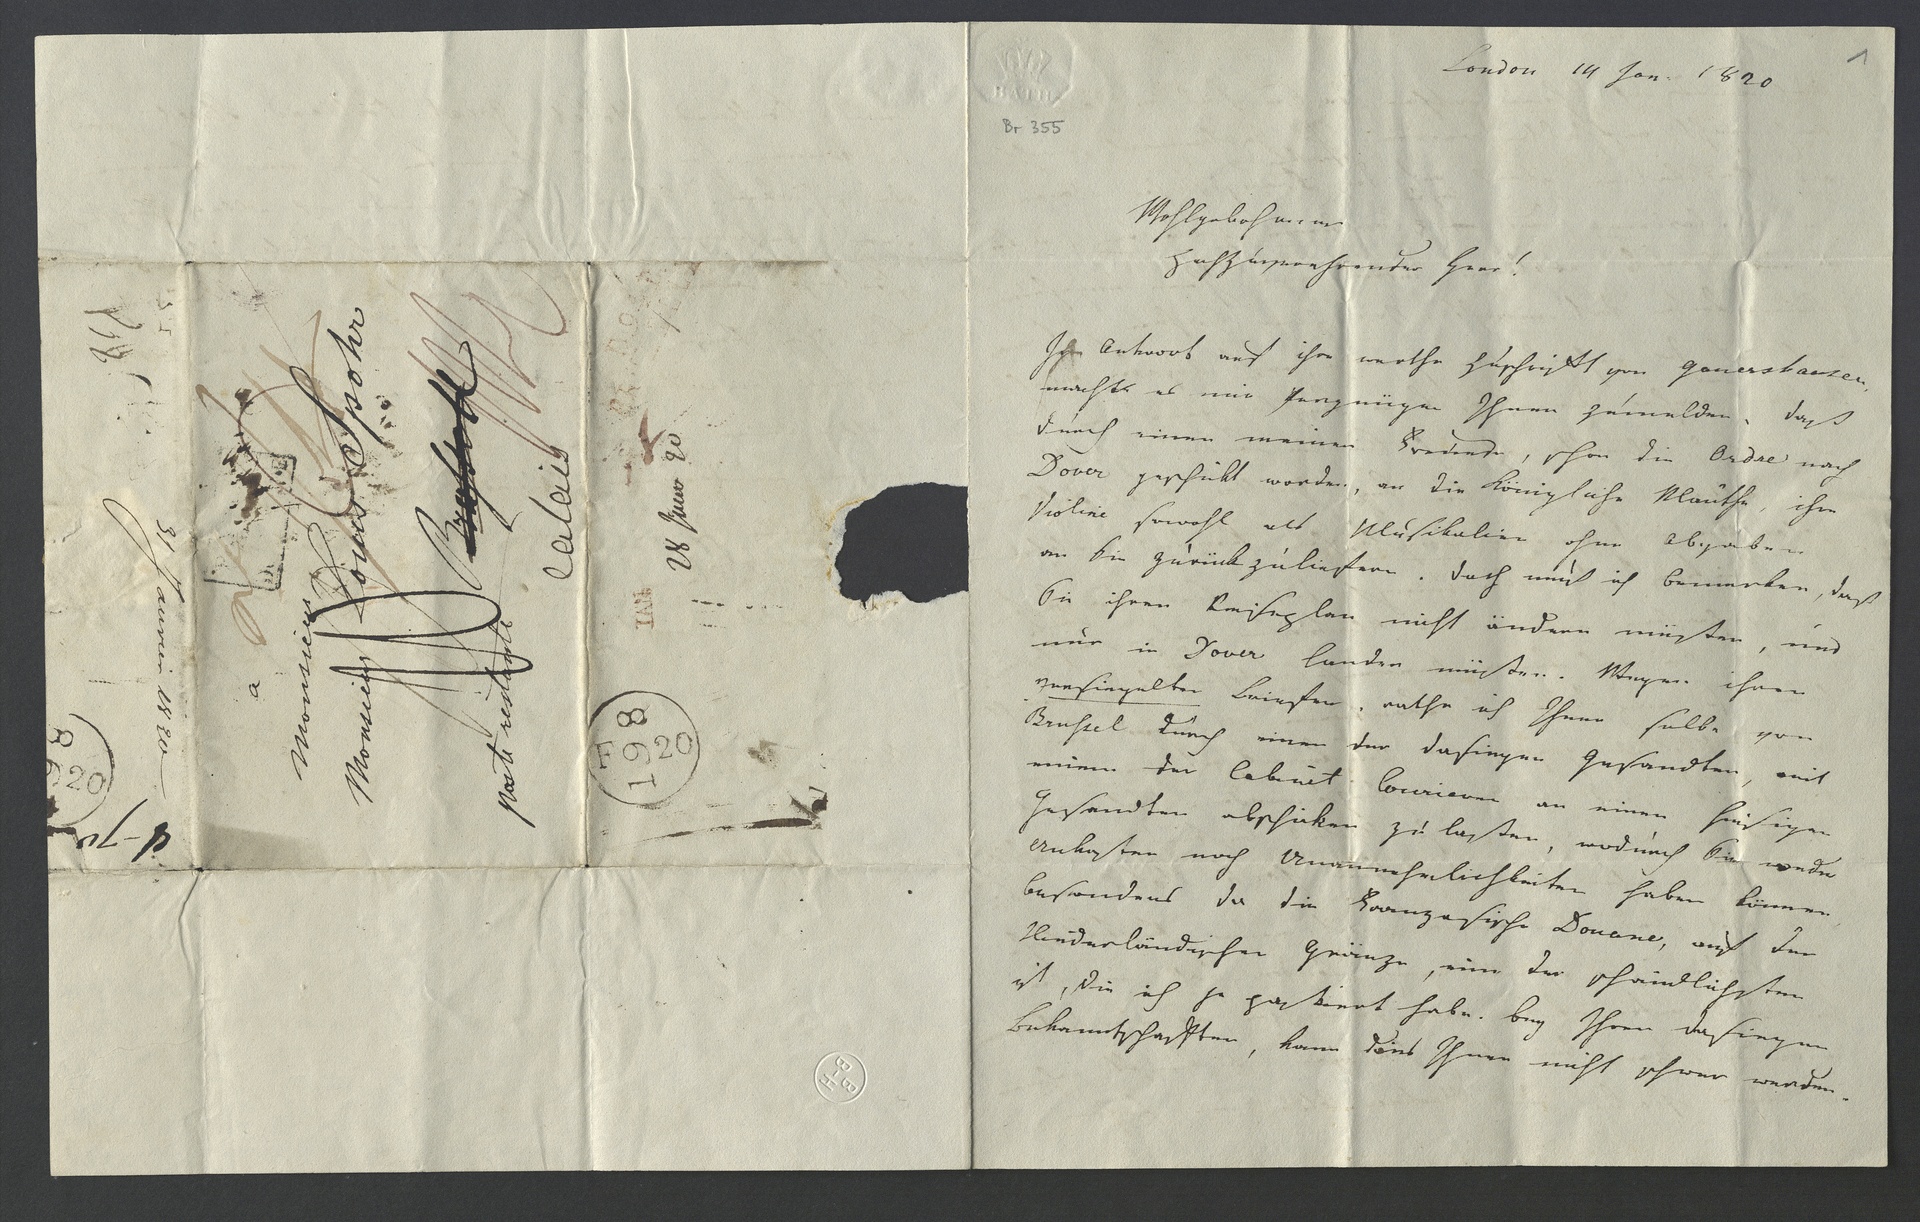 London 14 Jan. 1820
1
BATH
Br 355
Wohlgebohrner
Hochzuverehrender Herr!
In Antwort auf ihre werthe Zuschrifft von Ganershausen,
machts es mir Vergnügen Ihnen zumelden, daß
durch einen meiner Freunde, schon die Ordre nach
Dover geschickt worden, an die Königliche Mauthe, ihre
Violine sowohl als Musikalien ohne Abgaben
an Sie zurückzuliefern. Doch muß ich bemerken, daß
Sie ihren Reiseplan nicht ändern müßten, und
nur in Dover landen müßten. Wegen ihren
versiegelten Briefen, rathe ich Ihnen selbe von
Brussel durch einen der dasigen Gesandten, mit
einem der Cabinet Couriere an einen hiesigen
Gesandten abschicken zu laßen, wodurch Sie weder
Unkosten noch Unannehmlichkeiten haben können,
besonders da die Französische Douane, auf der
Niederländischen Gränze, eine der schändlichsten
ist, die ich je paßiert habe. bey Ihren dasigen
Bekanntschafften, kann dies Ihnen nicht schwer werden.
a
Monsieur
Monsieur Louis Spohr
poste restante
Calais
28 Janv 20
F 8
19 20
8
9 20
31 Janvier 1820